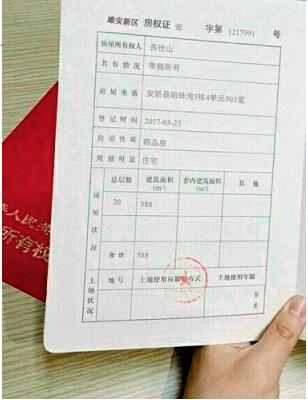 雄安新区 房权证 安 字第 1217991 号
房屋所有权人 苏世山
共有情况 单独所有
房屋坐落 安新县明珠湾5栋4单元303室
登记时间 2017-03-23
房屋性质 商品房
规划用途 住宅
房屋状况
总层数 建筑面积(m²) 套内建筑面积(m²) 其他
20 588
合计 588
土地状况
地号 土地使用权取得方式 土地使用年限
至
止
人民
所有权